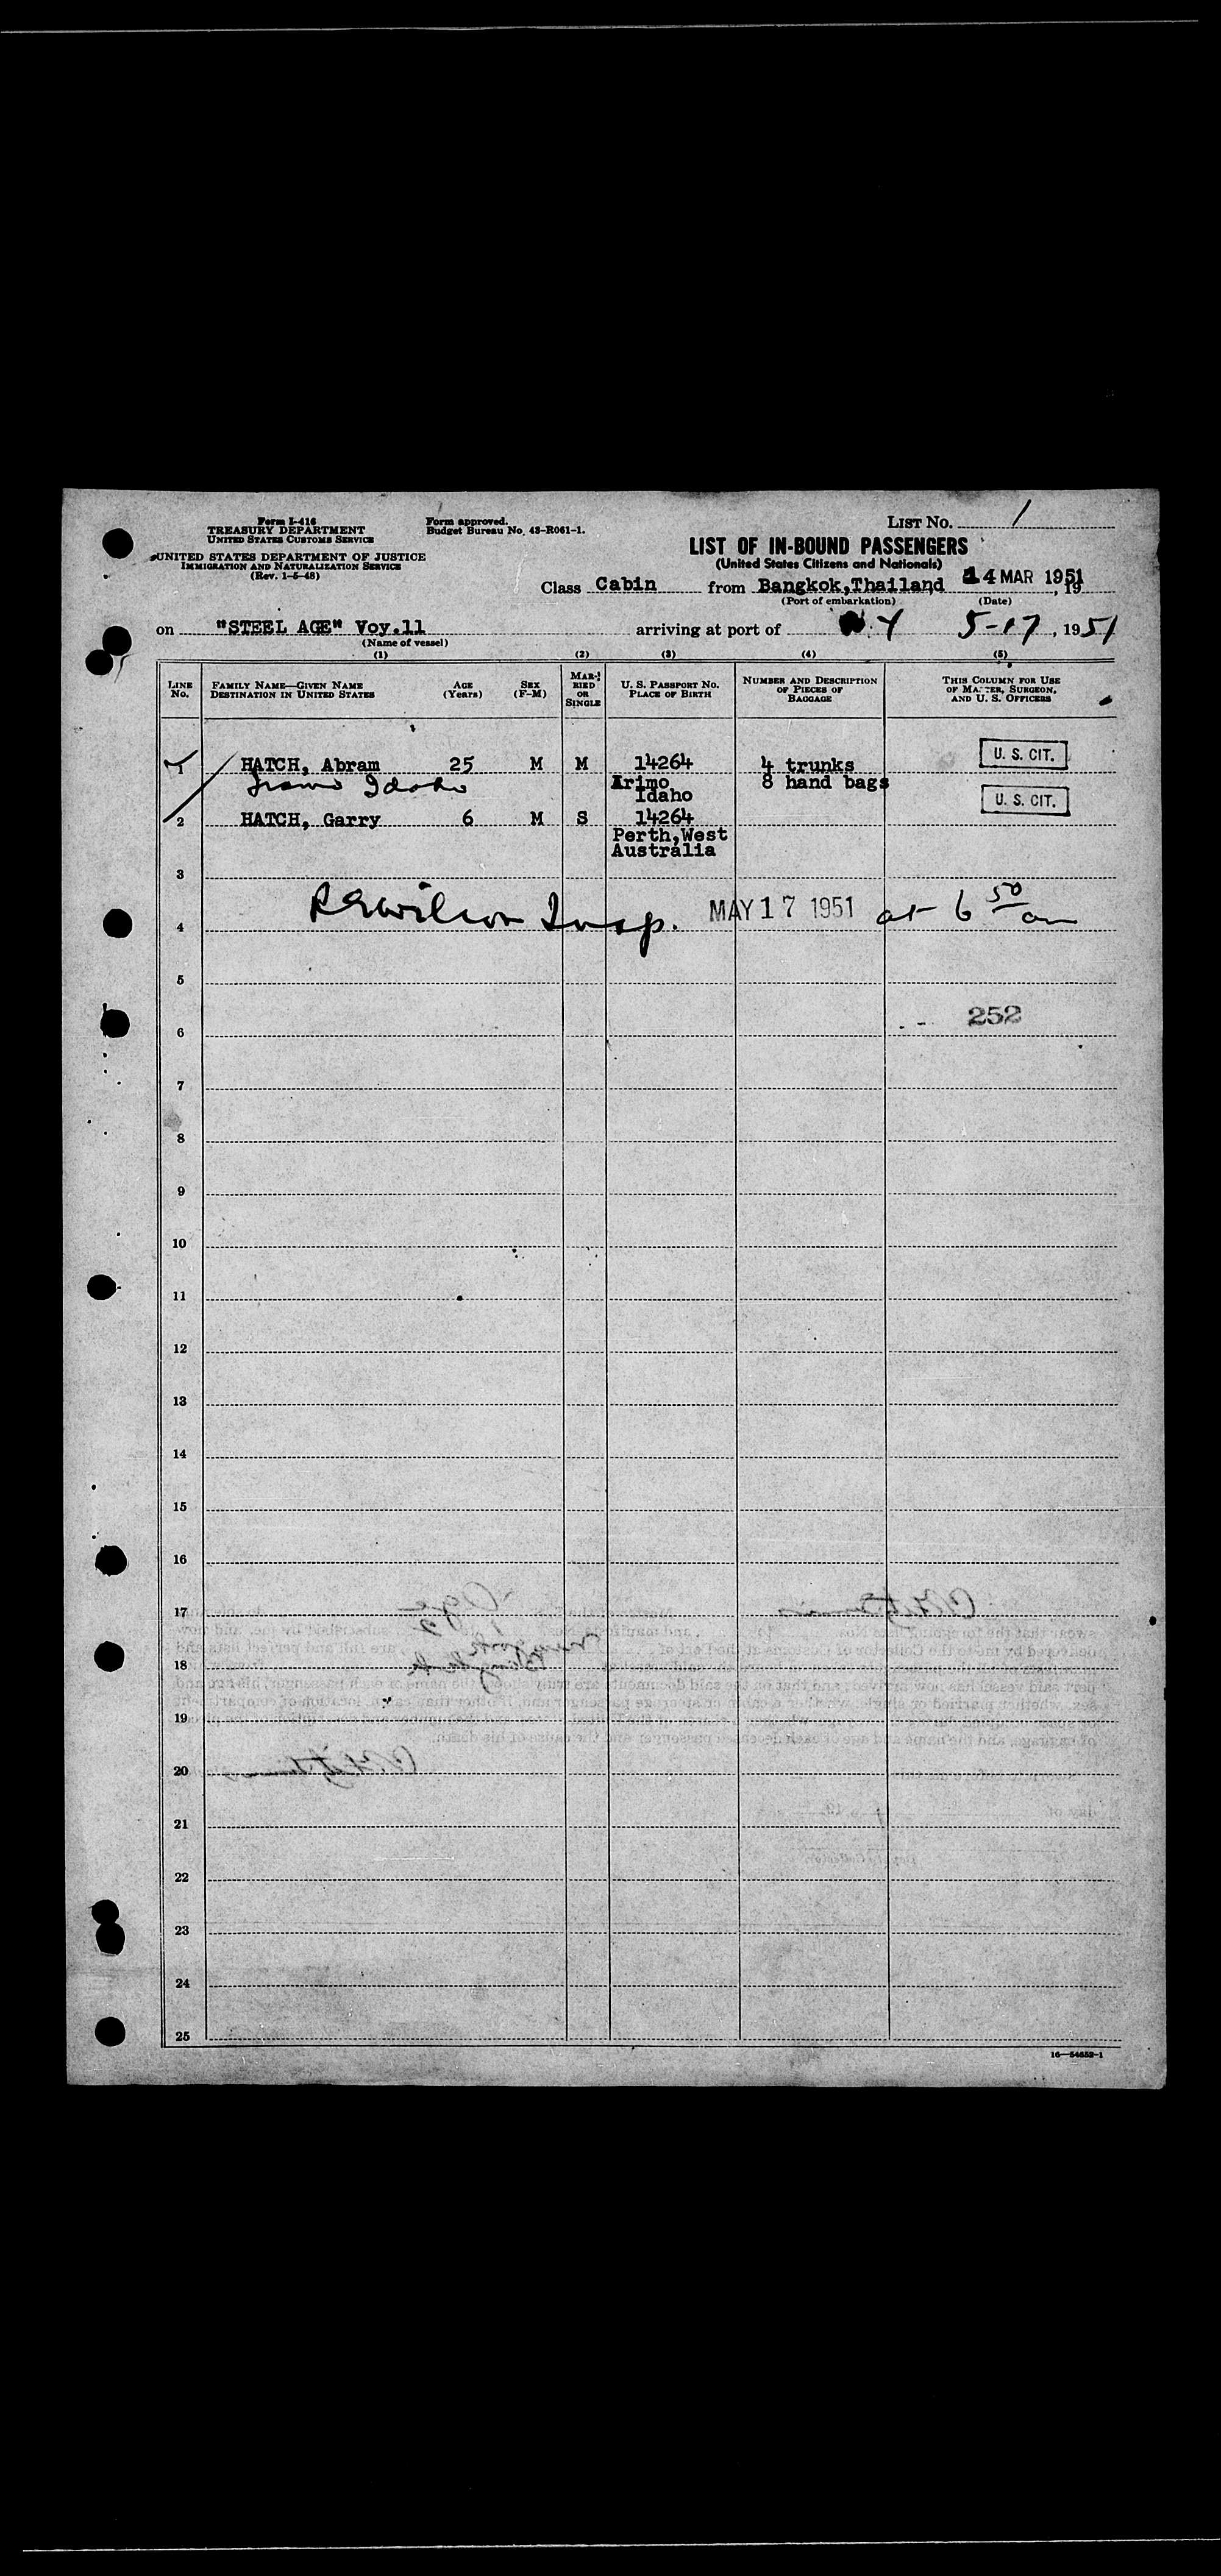 Form I-416
TREASURY DEPARTMENT
UNITED STATES CUSTOMS SERVICE
UNITED STATES DEPARTMENT OF JUSTICE
IMMIGRATION AND NATURALIZATION SERVICE
(Rev. 1-5-48)
Form approved.
Budget Bureau No. 43-R061-1.
LIST NO. 1
LIST OF IN-BOUND PASSENGERS
(United States Citizens and Nationals)
Class Cabin from Bangkok,Thailand 14 MAR 1951, 19
(Port of embarkation) (Date)
on "STEEL AGE" Voy.11 arriving at port of N Y 5-17, 1951
(Name of vessel)
(1) (2) (3) (4) (5)
LINE NO. FAMILY NAME—GIVEN NAME DESTINATION IN UNITED STATES AGE (Years) SEX (F-M) MARRIED OR SINGLE U. S. PASSPORT NO. PLACE OF BIRTH NUMBER AND DESCRIPTION OF PIECES OF BAGGAGE THIS COLUMN FOR USE OF MASTER, SURGEON, AND U. S. OFFICERS
1 HATCH, Abram 25 M M 14264 4 trunks U. S. CIT.
Idaho Arimo 8 hand bags
Idaho
2 HATCH, Garry 6 M S 14264 U. S. CIT.
Perth,West
Australia
3
Wilson Insp. MAY 17 1951 at 6 50 am
4
5
252
6
7
8
9
10
11
12
13
14
15
16
17
18
19
20
21
22
23
24
25
16—54652-1